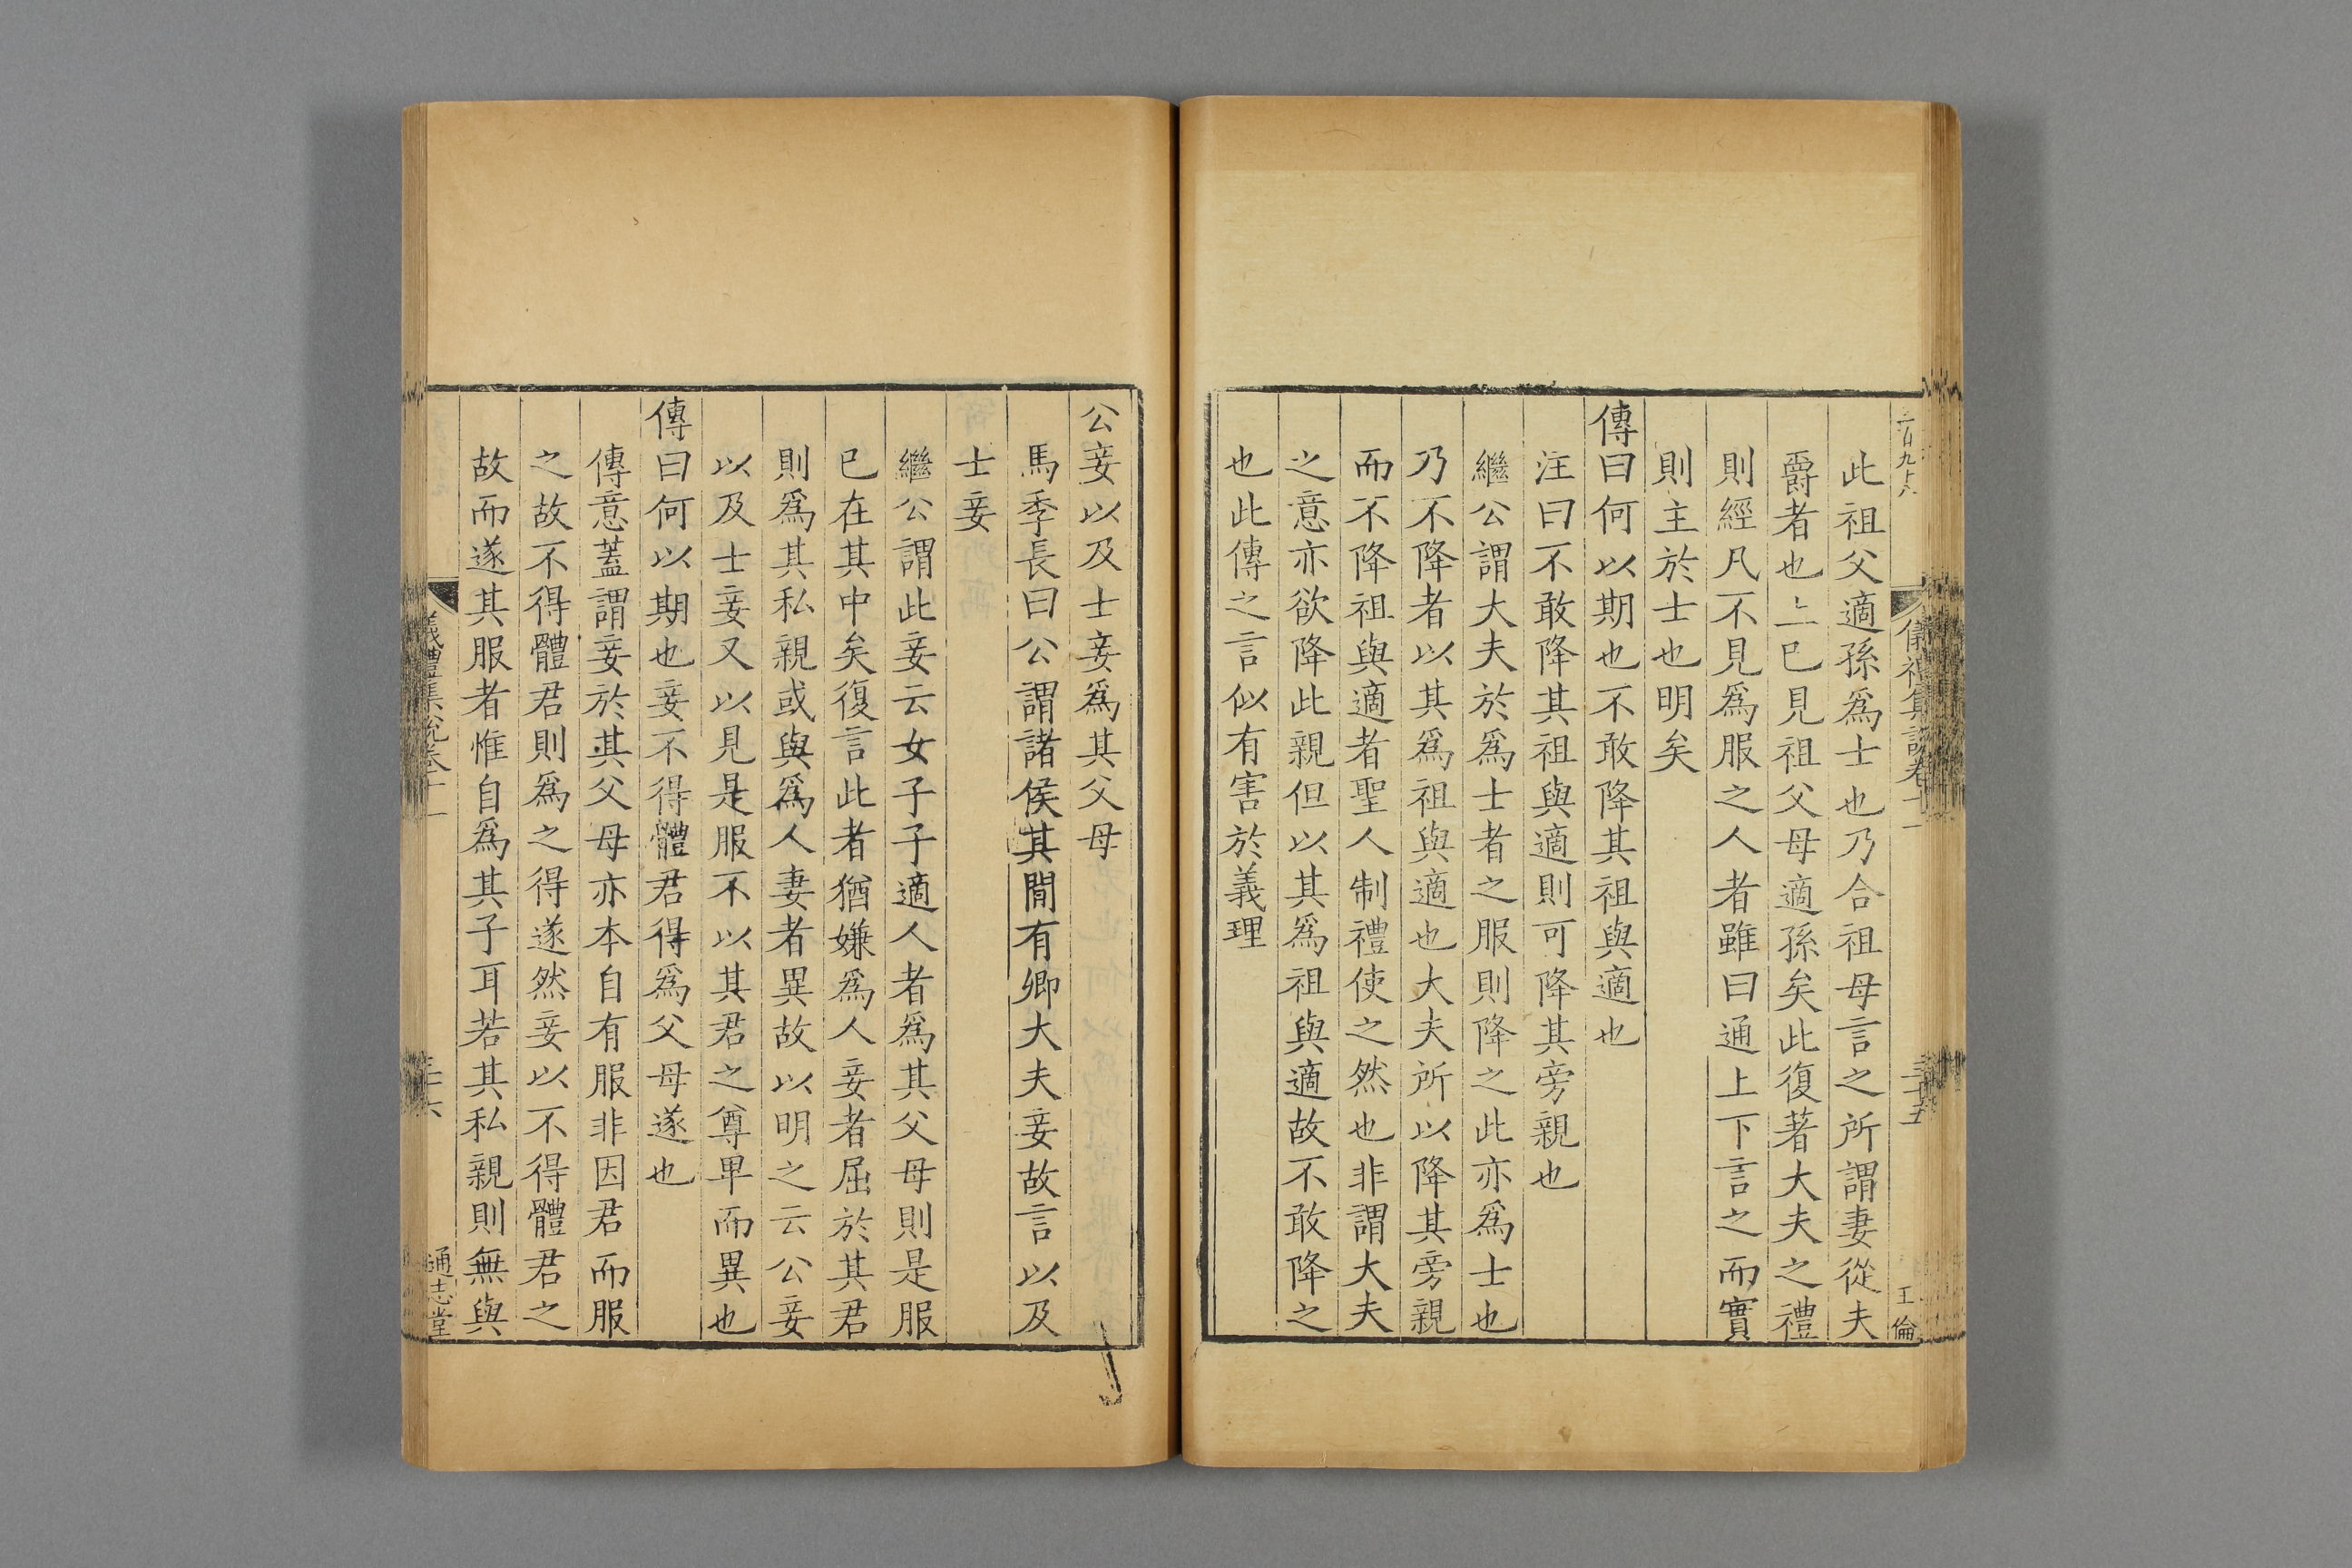 儀禮集說卷十一
三十五
王倫
此祖父適孫爲士也乃合祖母言之所謂妻從夫
爵者也上已見祖父母適孫矣此復著大夫之禮
則經凡不見爲服之人者雖曰通上下言之而實
則主於士也明矣
傳曰何以期也不敢降其祖與適也
注曰不敢降其祖與適則可降其旁親也
繼公謂大夫於爲士者之服則降之此亦爲士也
乃不降者以其爲祖與適也大夫所以降其旁親
而不降祖與適者聖人制禮使之然也非謂大夫
之意亦欲降此親但以其爲祖與適故不敢降之
也此傳之言似有害於義理
公妾以及士妾爲其父母
馬季長曰公謂諸侯其間有卿大夫妾故言以及
士妾
繼公謂此妾云女子子適人者爲其父母則是服
已在其中矣復言此者猶嫌爲人妾者屈於其君
則爲其私親或與爲人妻者異故以明之云公妾
以及士妾又以見是服不以其君之尊卑而異也
傳曰何以期也妾不得體君得爲父母遂也
傳意蓋謂妾於其父母亦本自有服非因君而服
之故不得體君則爲之得遂然妾以不得體君之
故而遂其服者惟自爲其子耳若其私親則無與
儀禮集說卷十一
三十六
通志堂